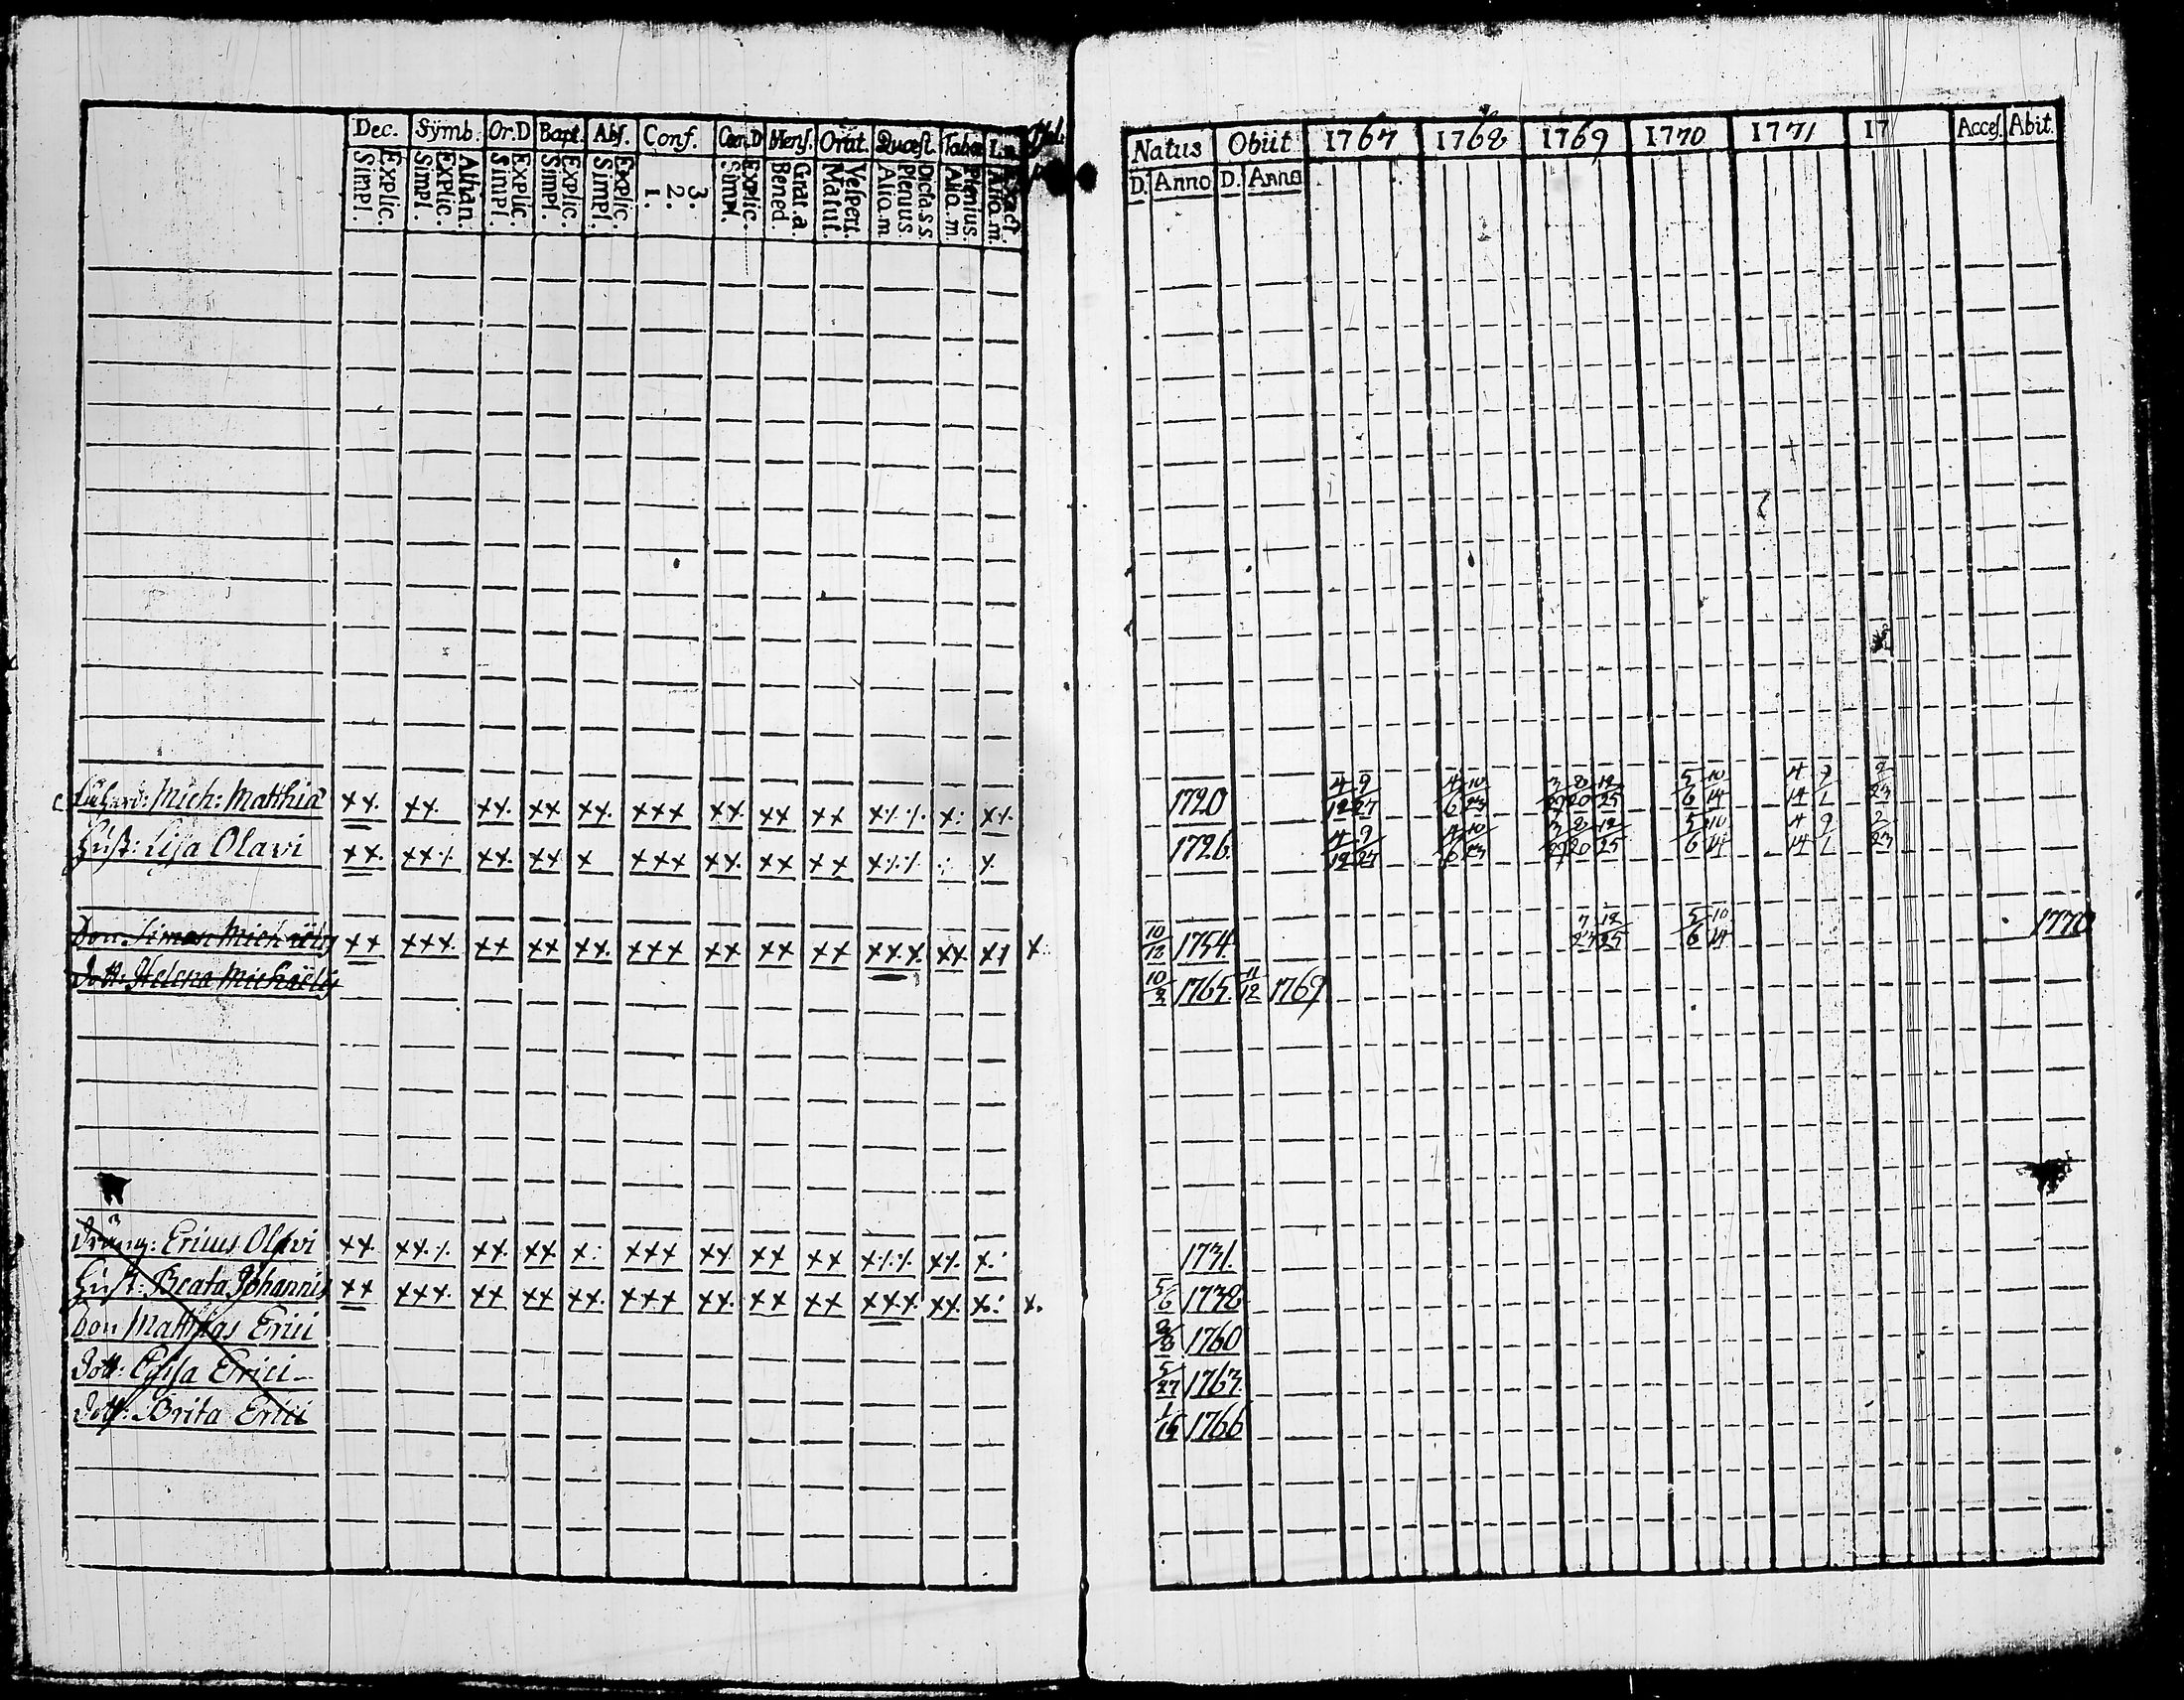 Dec. Symb. Or.D Bapt. Abs. Conf. Cœn.D Mens. Orat. Quæst. Tabœ
Explic. Simpl. Athan. Explic. Simpl. Explic. Simpl. Explic. Simpl. Explic. Simpl. 3. 2. 1. Explic. Simpl. Grat.a. Bened. Vespert. Matut. Dicta.s.s. Plenius. Alio.m. Plenius. Alio.m. Exact. Alio.m.
Natus Obiit 1767 1768 1769 1770 1771 17 Acces. Abit.
D. Anno D. Anno
Mich: Matthiæ xx. xx. xx. xx xx. xxx xx. xx xx 1720 4/12 9/27 4/6 10/23 3/29 8/20 12/25 5/6 10/14 4/14 9/1 2/23
Hust: Lisa Olavi xx. xx xx. xx x xxx xx. xx xx 1726. 4/12 9/27 4/6 10/23 3/29 8/20 12/25 5/6 10/14 4/14 9/1 2/23
Son Simon Michaëlis xx xxx. xx xx xx. xxx xx xx xx xxx xx x 10/12 1754. 7/27 12/25 5/6 10/14 1770
Dott: Helena Michaëlis 10/3 1765. 11/12 1769
Dräng: Ericus Olavi xx. xx xx. xx x: xxx xx xx xx x: 1731.
Hust: Beata Johannis xx xxx. xx xx xx. xxx xx. xx xx xxx. xx. x. 5/6 1738
Son Matthias Erici 1760
Dott: Erici 5/27 1763.
Dott: Brita Erici 1766